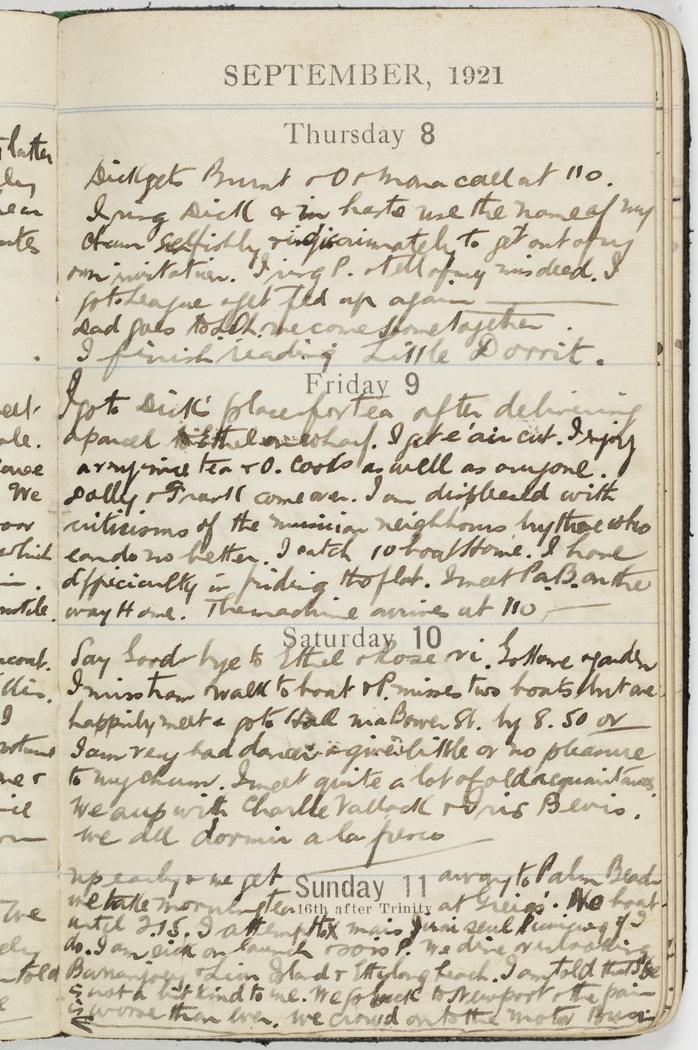 SEPTEMBER, 1921
Thursday 8
Dick gets Burnt & O & Mona call at 110.
I ring Dick & in haste use the name of my
chum selfishly & indiscriminately to get out of my
own invitation. I ring P. & tell of my misdeed. I
go to League & get fed up again
Dad goes to we come home together.
I finish reading Little Dorrit.
Friday 9
I go to Dick's place for tea after delivering
a parcel to Ethel on wharf. I get 'air cut. I enjoy
a very nice tea & O. cooks as well as anyone.
Sally & Frank come over. I am displeased with
criticisms of the musician neighbours by those who
can do no better. I catch 10 boat Home. I have
difficiculty in finding the flat. I meet Pa B. on the
way Home. The machine arrives at 110
Saturday 10
Say Good bye to Ethel & Rose . Go Home & garden
I miss tram & walk to boat & P. misses two boats but we
happily meet & go to Hall Bower St. by 8.50 or
I am very bad dancer & give little or no pleasure
to my chum. I meet quite a lot of old acquaintances
We sup with Charlie Vallack & Iris Bevis.
We all dormir a la fresco
Sunday 11
16th after Trinity
up early & we get away to Palm Beach
we take morning tea at Greigs'. No boat
until 2.15. I attempt mais
do. I am sick on launch & so is P. We dine overlooking
Barranjoey & Lion Island & Ettylong beach. I am told that I
not a bit kind to me. We go back to Newport & the pain
is worse than ever. We crowd onto the motor Buss